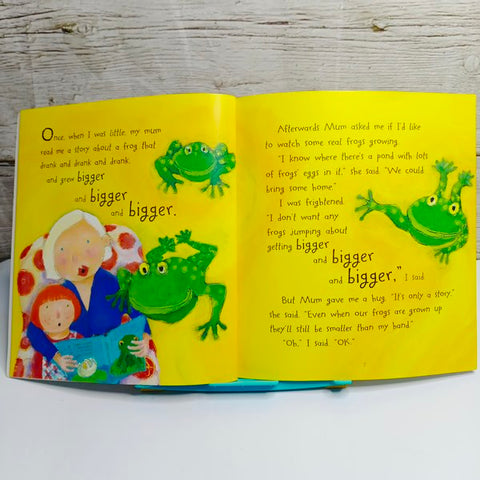 Once, when I was little, my mum
read me a story about a frog that
drank and drank and drank,
and grew bigger
and bigger
and bigger.
Afterwards Mum asked me if I'd like
to watch some real frogs growing.
"I know where there's a pond with lots
of frogs' eggs in it," she said. "We could
bring some home."
I was frightened.
"I don't want any
frogs jumping about
getting bigger
and bigger
and bigger," I said.
But Mum gave me a hug. "It's only a story,"
she said. "Even when our frogs are grown up
they'll still be smaller than my hand."
"Oh," I said. "OK."